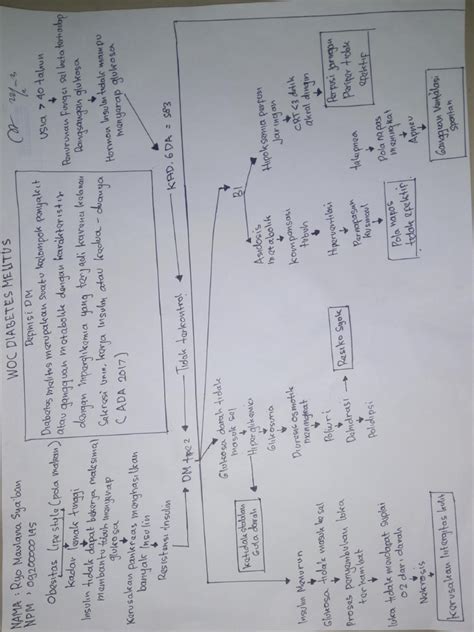 NAMA : Riyo Maulana Sya'ban
NPM :
WOC DIABETES MELITUS
Depinisi DM
Diabetes melitus merupakan suatu kelompok penyakit
atau gangguan metabolik dengan karakteristik
dengan hiperglikemia yang terjadi karena kelainan
Sekresi insulin, kerja insulin atau kedua - duanya
(ADA 2017)
Obesitas (life style (pola makan)
Kadar lemak tinggi
Insulin tidak dapat bekerja maksimal
membantu tubuh menyerap
glukosa
Kerusakan pankreas menghasilkan
banyak insulin
Resistensi insulin
Usia > 40 tahun
Penurunan fungsi sel beta terhadap
Rangsangan glukosa
Hormon insulin tidak mampu
menyerap glukosa
DM tipe 2
Tidak terkontrol
KAD. GDA = 583
Glukosa darah tidak
masuk sel
Hiperglikemia
Glikosuria
Diuresis osmotik
meningkat
Poliuri
Dehidrasi
Polidipsi
Resiko Syok
Ketidakstabilan
gula darah
Insulin Menurun
Glukosa tidak masuk ke sel
Proses penyembuhan luka
terhambat
luka tidak mendapat suplai
O2 dari darah
Nekrosis
Kerusakan Integritas kulit
B1
Asidosis
metabolik
kompensasi
tubuh
Hiperventilasi
Pernapasan
kusmaul
Pola napas
tidak efektif
Hipoksemia perfusi
jaringan
CRT <3 detik
akral dingin
Perfusi jaringan
Perifer tidak
efektif
takipnea
Pola napas
meningkat
Apneu
Gangguan Ventilasi
spontan